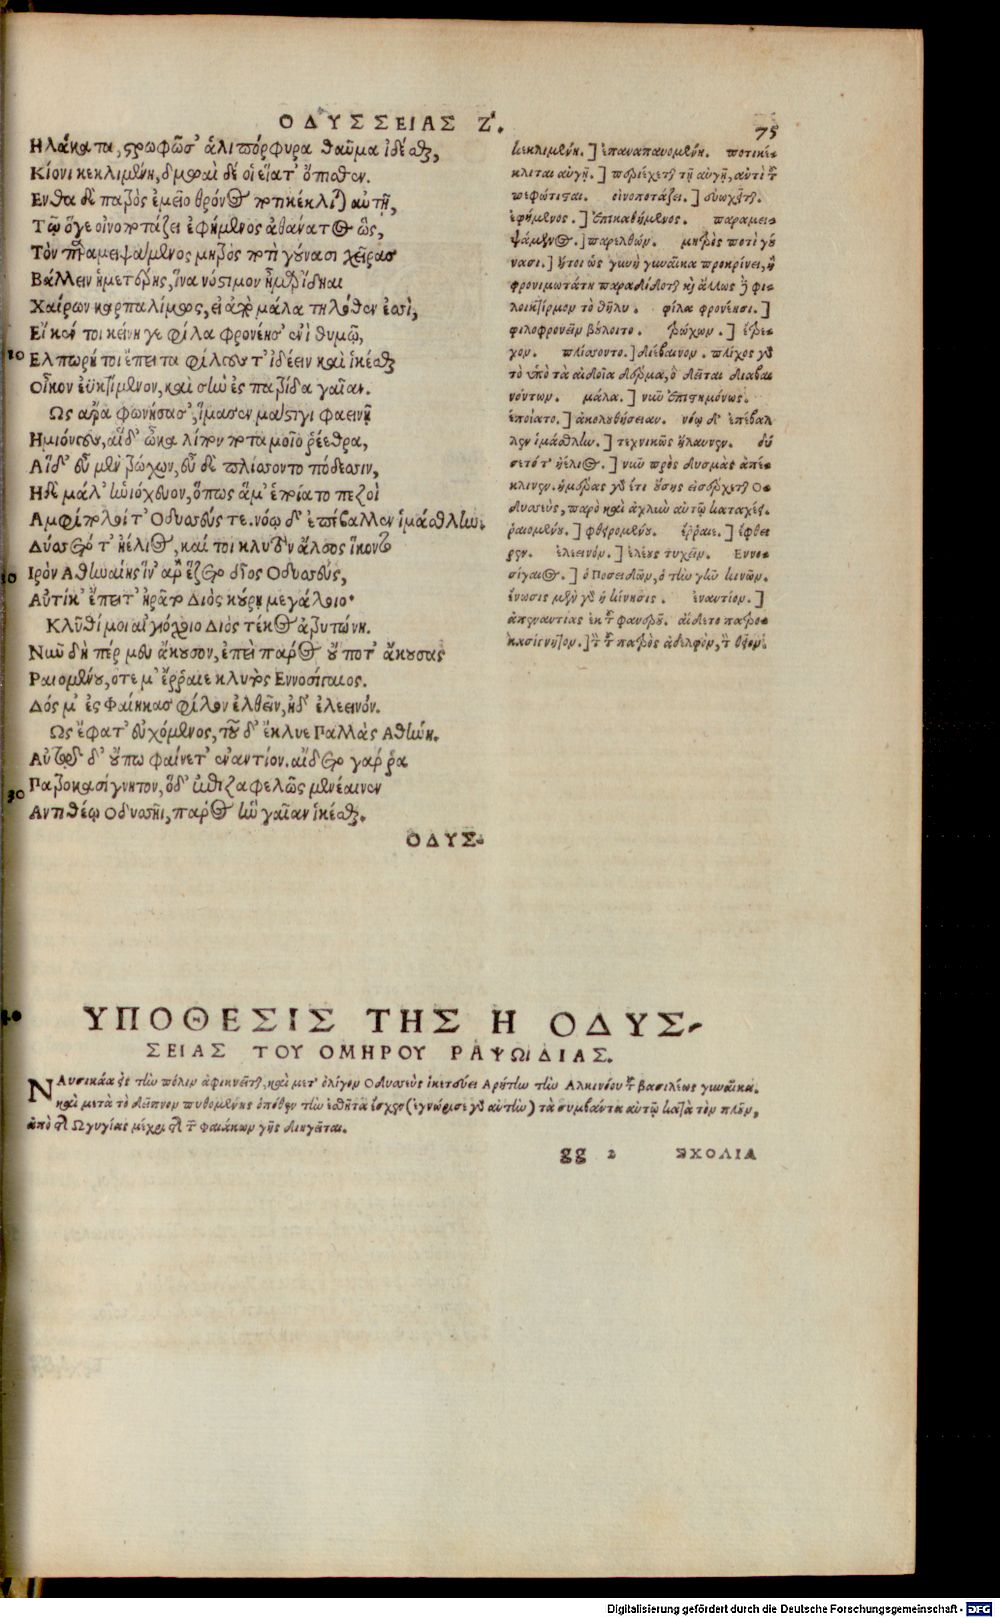 ΟΔΥΣΣΕΙΑΣ Ζ.
75
Ηλάκατα, στρωφῶσ' ἁλιπόρφυρα θαῦμα ἰδέσθαι,
Κίονι κεκλιμένη, δμωαὶ δέ οἱ εἵατ' ὄπισθεν.
Ενθα δὲ πατρὸς ἐμεῖο θρόνος ποτικέκλιται αὐτῇ,
Τῷ ὅγε οἰνοποτάζει ἐφήμενος ἀθάνατος ὥς,
Τὸν παραμειψάμενος μητρὸς ποτὶ γούνασι χεῖρας
Βάλλειν ἡμετέρης, ἵνα νόστιμον ἦμαρ ἴδηαι
Χαίρων καρπαλίμως, εἰ καὶ μάλα τηλόθεν ἐσσὶ,
Εἴ κέν τοι κείνη γε φίλα φρονέησ' ἐνὶ θυμῷ,
10 Ελπωρή τοι ἔπειτα φίλους τ' ἰδέειν καὶ ἱκέσθαι
Οἶκον ἐϋκτίμενον, καὶ σὴν ἐς πατρίδα γαῖαν.
Ως ἄρα φωνήσασ', ἵμασεν μάστιγι φαεινῇ
Ημιόνους, αἵ δ' ὦκα λίπον ποταμοῖο ῥέεθρα,
Αἵ δ' εὖ μὲν τρώχων, εὖ δὲ πλίσσοντο πόδεσσιν,
Ηδὲ μάλ' ἡνιόχευον, ὅπως ἅμ' ἑποίατο πεζοὶ
Αμφίπολοί τ' Οδυσσεύς τε. νόῳ δ' ἐπέβαλλεν ἱμάσθλην.
Δύσετό τ' ἠέλιος, καί τοι κλυτὸν ἄλσος ἵκοντο
20 Ιρὸν Αθηναίης ἵν' ἄρ' ἕζετο δῖος Οδυσσεύς,
Αὐτίκ' ἔπειτ' ἠρᾶτο Διὸς κούρῃ μεγάλοιο·
Κλῦθί μοι αἰγιόχοιο Διὸς τέκος ἀτρυτώνη.
Νῦν δή πέρ μευ ἄκουσον, ἐπεὶ πάρος οὔ ποτ' ἄκουσας
Ραιομένου, οτε μ' ἔρραιε κλυτὸς Εννοσίγαιος.
Δός μ' ἐς Φαίηκας φίλον ἐλθεῖν, ἠδ' ἐλεεινόν.
Ως ἔφατ' εὐχόμενος, τοῦ δ' ἔκλυε Παλλὰς Αθήνη.
Αὐτῷ δ' οὔπω φαίνετ' ἐναντίον. αἴδετο γάρ ῥα
30 Πατροκασίγνητον, ὅδ' ἐπιζαφελῶς μενέαινεν
Αντιθέῳ Οδυσῆι, πάρος ἣν γαῖαν ἱκέσθαι.
ΟΔΥΣ-
κεκλιμένη.] ἐπαναπαυομένη. ποτικέ-
κλιται αὐγῇ.] περιέχεται τῇ αὐγῇ, αὐτὶ τοῦ
πεφώτισται. οἰνοποτάζει.] εὐωχεῖται.
ἐφήμενος.] ἐπικαθήμενος. παραμει-
ψάμενος.] παρελθών. μητρὸς ποτὶ γού
νασι.] ἤτοι ὡς γυνὴ γυναῖκα προκρίνει, ἢ
φρονιμωτάτη παραδίδοται καὶ ἄλλως ἢ φι-
λοικτίρμον τὸ θῆλυ. φίλα φρονέησι.]
φιλοφρονεῖν βούλοιτο. τρώχων.] ἔτρε-
χον. πλίσσοντο.] διέβαινον. πλίχος γὰρ
τὸ ὑπὸ τὰ αἰδοῖα δέρμα, ὃ δεῖται διαβαι
νόντων. μάλα.] νῦν ἐπιστημόνως.
ἑποίατο.] ἀκολουθήσειαν. νόῳ δ' ἐπέβαλ
λεν ἱμάσθλην.] τεχνικῶς ἤλαυνεν. δύ
σετό τ' ἠέλιος.] νῦν πρὸς δυσμὰς ἀπέ-
κλινεν. ἡμέρας γὰρ ἔτι οὔσης εἰσέρχεται Ο-
δυσσεύς, παρὸ καὶ ἀχλὺν αὐτῷ καταχέει.
ῥαιομένου.] φθειρομένου. ἔρραιε.] ἔφθει
ρεν. ἐλεεινόν.] ἐλέους τυχεῖν. Εννο-
σίγαιος.] ὁ Ποσειδῶν, ὁ τὴν γῆν κινῶν.
ἔνωσις μὲν γὰρ ἡ κίνησις. ἐναντίον.]
ἀπεναντίας ἐκ τοῦ φανεροῦ. αἴδετο πατρο-
κασίγνητον.] τὸν τοῦ πατρὸς ἀδελφὸν, τὸν θεῖον.
40 ΥΠΟΘΕΣΙΣ ΤΗΣ Η ΟΔΥΣ-
ΣΕΙΑΣ ΤΟΥ ΟΜΗΡΟΥ ΡΑΨΩΔΙΑΣ.
ΝΑυσικάα εἰς τὴν πόλιν ἀφικνεῖται, καὶ μετ' ὀλίγον Οδυσσεὺς ἱκετεύει Αρήτην τὴν Αλκινόου τοῦ βασιλέως γυναῖκα.
καὶ μετὰ τὸ δεῖπνον πυθομένης ὁπόθεν τὴν ἐσθῆτα ἔσχεν (ἐγνώρισε γὰρ αὐτὴν) τὰ συμβάντα αὐτῷ κατὰ τὸν πλοῦν,
ἀπὸ τῆς Ωγυγίας μέχρι τῆς τῶν φαιάκων γῆς διηγεῖται.
gg 2 ΣΧΟΛΙΑ
Digitalisierung gefördert durch die Deutsche Forschungsgemeinschaft - DFG